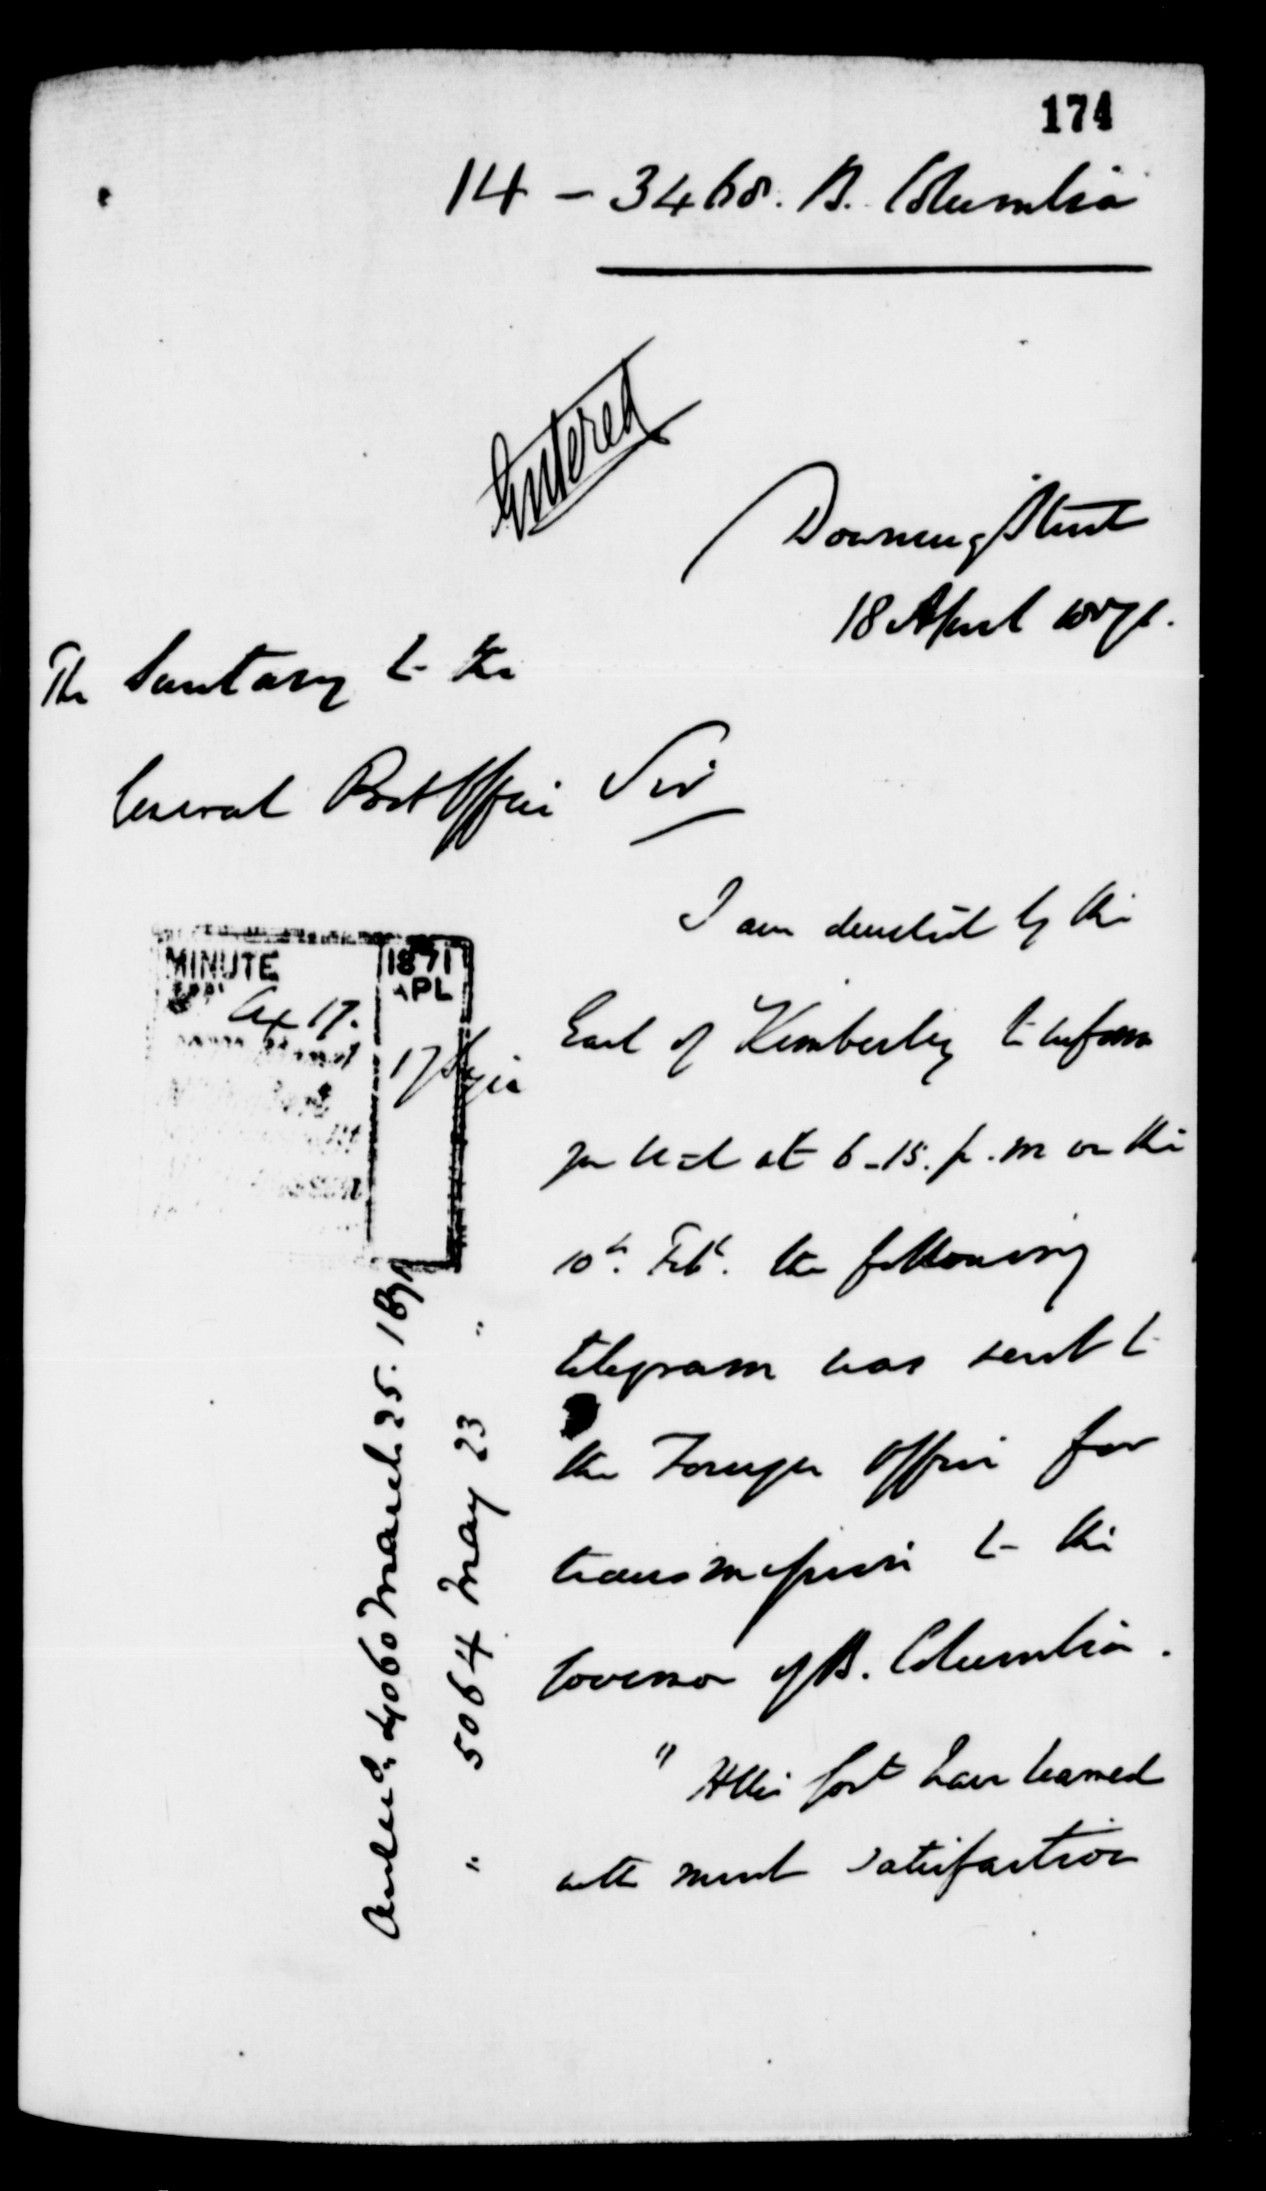 174
14 - 3468. B. Columbia
Entered
Downing Street
18 April 1871.
The Secretary to the
General Post Office
Sir
MINUTE
Ap 17.
1871
APL
17
I am directed by the
Earl of Kimberley to inform
you that at 6-15. p.m on the
10th. Feby. the following
telegram was sent to
the Foreign Office for
transmission to the
Governor of B. Columbia.
" H M's Govt have learned
with much satisfaction
Answd. 4060 March 25. 1871
" 5064 May 23 "